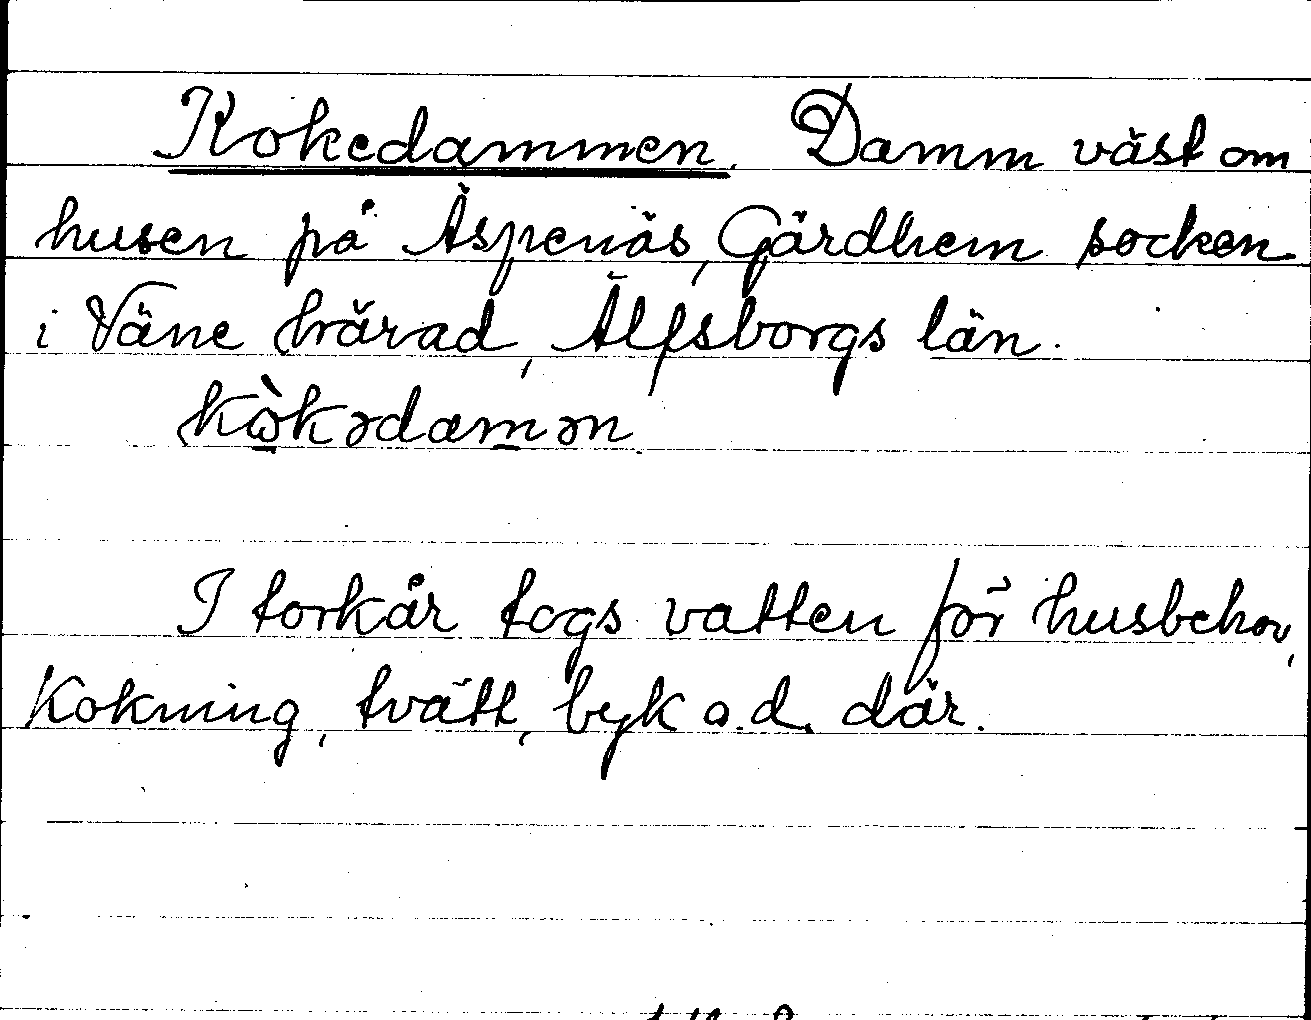 Kokedammen. Damm väst om
husen på Äspenäs, Gärdhem socken
i Väne härad, Älfsborgs län.
kὼkədamən
I torkår togs vatten för husbehov,
Kokning, tvätt, byk o.d. där.